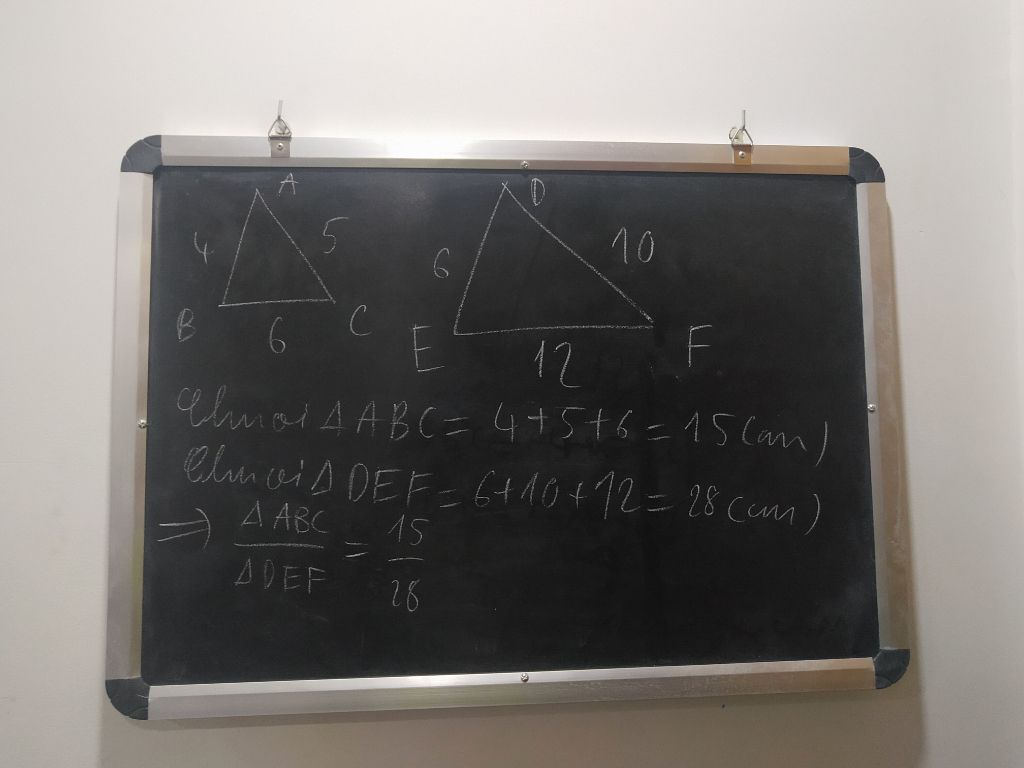 A
D
4
5
6
10
B
6
C
E
12
F
Chu vi Δ ABC = 4+5+6 = 15 (cm)
Chu vi Δ DEF = 6+10+12 = 28 (cm)
=> ΔABC/ΔDEF = 15/28